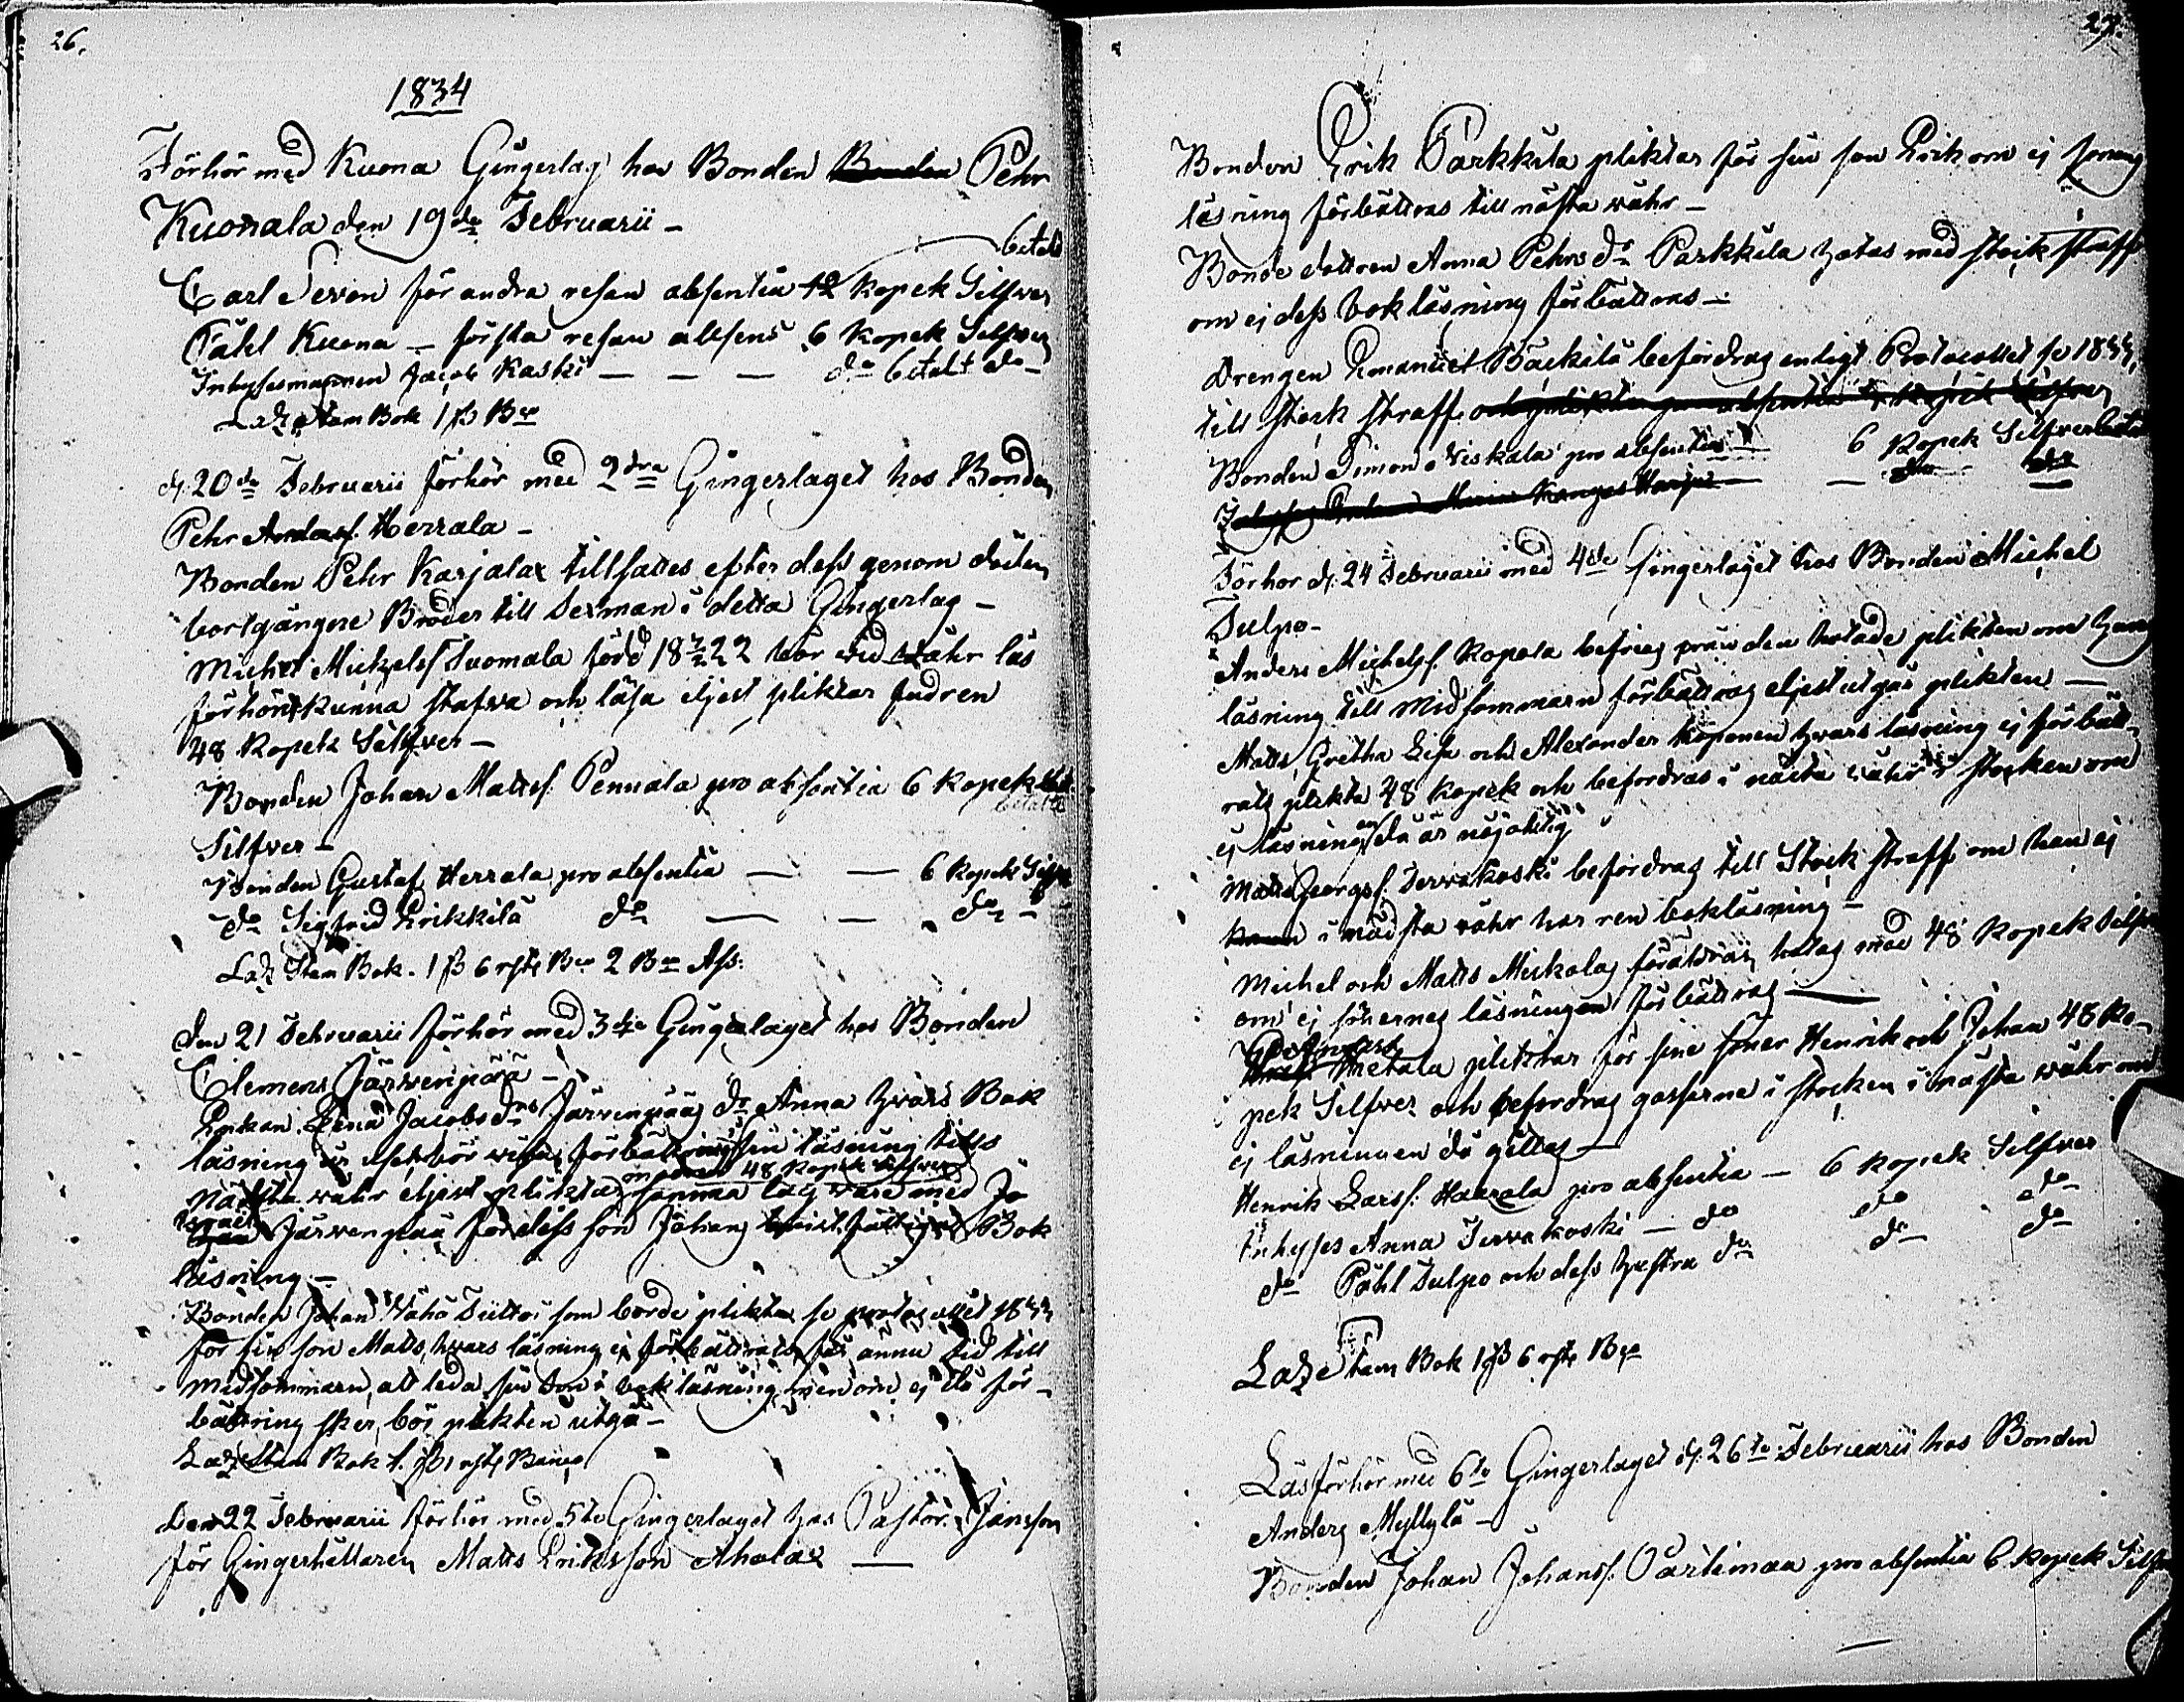 26.
1834
Förhör med Kuona Gingerlag hos Bonden Bonden Pehr
Kuonala den 19de Februarii –
betalt
Carl Teron för andra resan absentia 12 kopek Silfver
Påhl Kuona – första resan absens 6 kopek Silfver
Inhysesmannen Jacob Kaski – – – do betalt do –
Laze Stam Bok 1 ß Bco
d. 20de Februarii förhör med 2dra Gingerlaget hos Bonden
Pehr Andersf. Herrala –
Bonden Pehr Karjalax tillsattes efter dess genom döden
bortgångne Broder till Sexman i detta Gingerlag –
Michel Michelsf Tuomala född 18 22 bör wid wåhr läs
förhöret kunna stafwa och läsa eljest pliktar fadren
48 Kopek Silfver –
Bonden Johan Mattsf. Pennala pro absentia 6 kopek
betalt
Silfver –
Bonden Gustaf Herrala pro absentia — — 6 kopek Silfr
do Sigfrid Erikkilä do — — do –
Laz Stam Bok. 1 ß 6 rst Bco 2 Bco Ass:
den 21 Februarii förhör med 3dje Gingerlaget hos Bonden
Clemens Järwenpää –
Enkan Lena Jacobsdr Järvenpääs dr Anna hvars Bok
läsning är bör wisa förbättring i sin läsning till
48 kopek Silfver
nästa wåhr eljest pliktar samma lag ware med
Järvenpää för dess son Johans Bok
läsning –
Bonden Johan Wähä Tuitto som borde plikta se protocollet 1833
för sin son Matts, hvars läsning ej förbättrats får ännu tid till
midsommaren, att leda sin son i bok läsning, men om ej då för-
bättring sker, bör plikten utgå –
Laze Stam Bok 1. ß rst Banco
Den 22 Februarii förhör med 5te Gingerlaget hos Pastor Jansson
för Gingerhållaren Matts Eriksson Ahola —
27.
Bonden Erik Parkkila pliktar för sin son Erik om ej
läsning förbättras till nästa wåhr –
Bonde dottren Anna Pehrs dr Parkkila hotas med stock straff
om ej dess bokläsning förbättras –
Drengen Emanuel Bäckilä befordras enligt Protocollet se 1833,
till stock straff och plikten pro absentia kopek Silfver
Bonden Simon Niskala pro absentia – 6 Kopek Silfver betalt
Maria Kangas Harju – — do do
Förhör d. 24 Februarii med 4de Gingerlaget hos Bonden Michel
Tulpo –
Anders Michelsf. Kopola befrias från den hotade plikten om hans
läsning till midsommarn förbättras eljest utgår plikten —
Matts, Gretha Lisa och Alexander Koponen hvars läsning ej förbätt-
rats plikta 48 Kopek och befordras i nästa wåhr i stocken om
ej läsningen då är nöjaktig
Matts Georgsf. Tervakoski befordras till Stock straff om han ej
i nästa wåhr har ren bokläsning –
Michel och Matts Miekolas föräldrar hotas med 48 kopek Silfver
om ej sönernes läsningen förbättras —
Anders
Metala pliktar för sine söner Henrik och Johan 48 Ko-
pek Silfver och befordras gossarne i stocken i nästa wåhr om
ej läsningen då gillas –
Henrik Larsf. Harrala pro absentia – 6 kopek Silfver
Inhyses Anna Tervakoski – do do do
do Påhl Tulpo och dess hustru do do do
Laze Stam Bok 1 ß 6 rst Bco
Läsförhör med 6te Gingerlaget d. 26te Februarii hos Bonden
Anders Myllylä –
Bonden Johan Johansf. Partimaa pro absentia 6 kopek Silfver